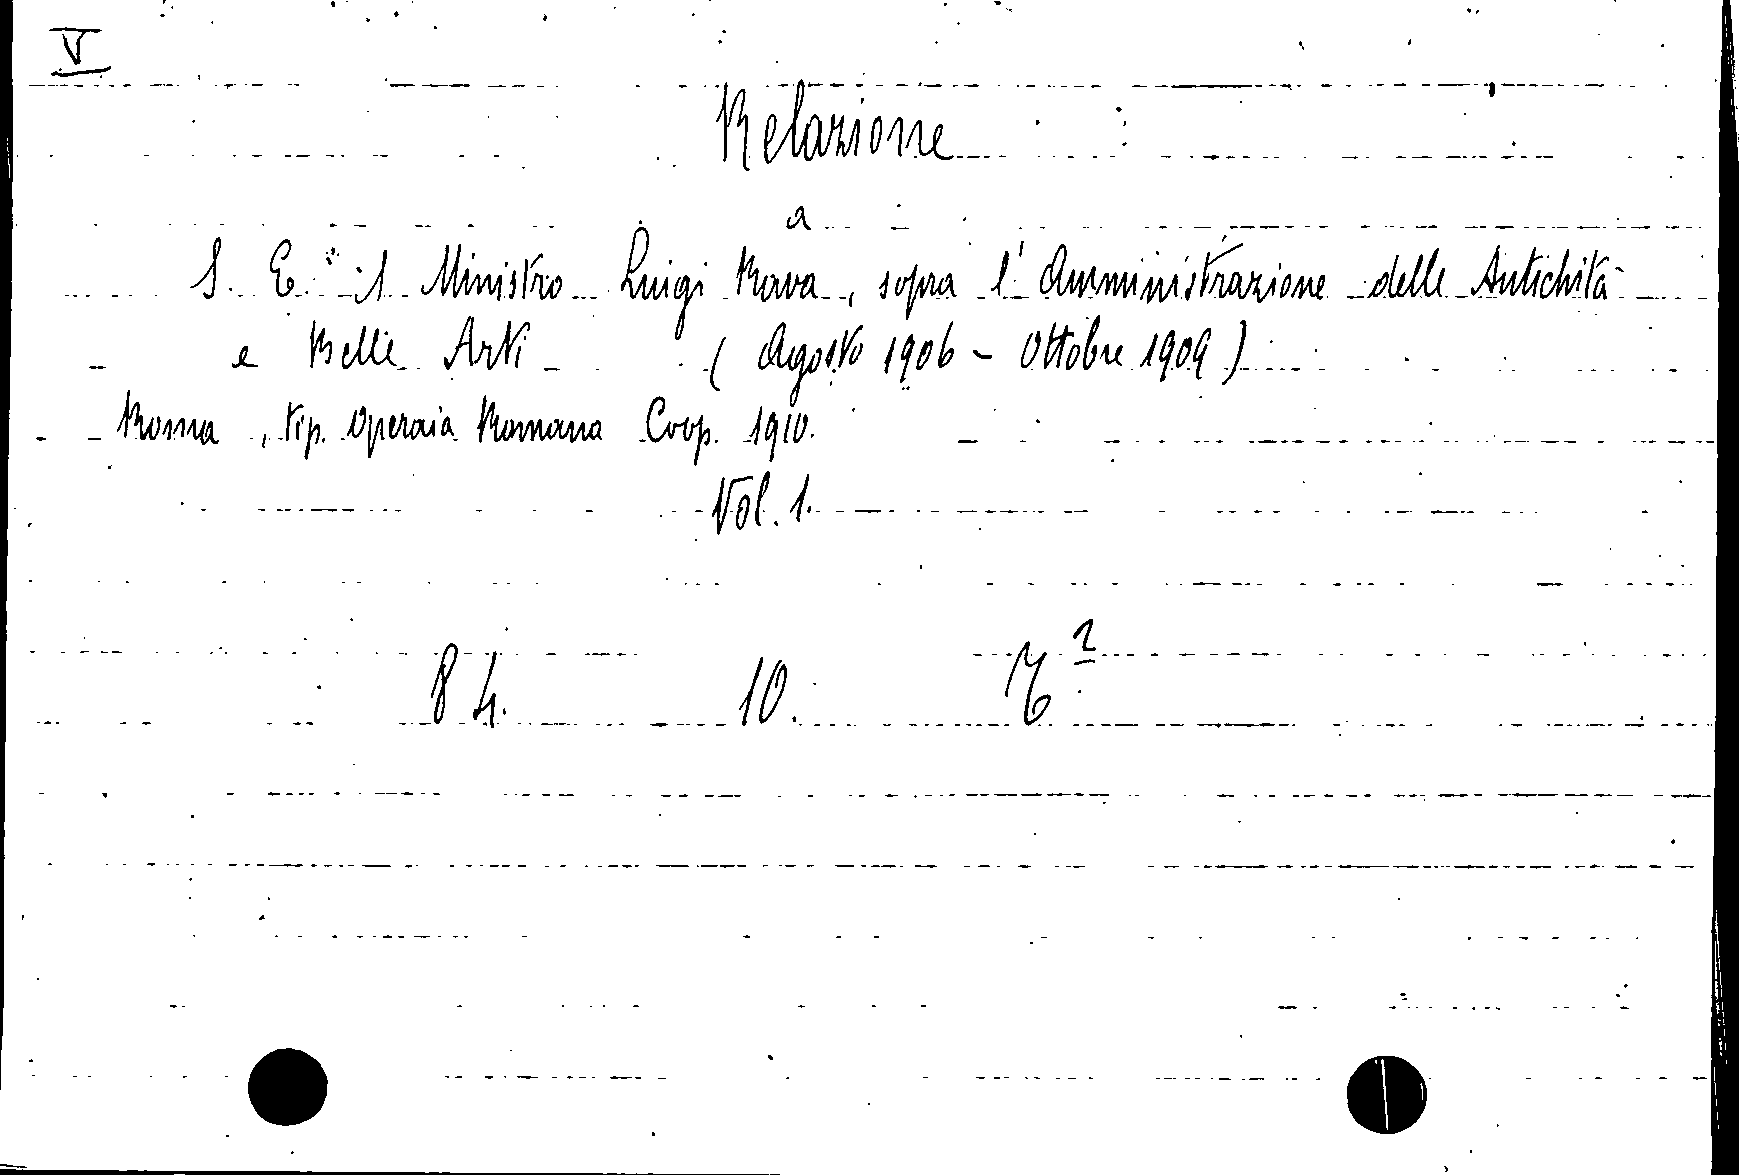 V
Relazione
a
S. E. il Ministro Luigi Rava, sopra l'Amministrazione delle Antichità
e Belle Arti (Agosto 1906 - Ottobre 1909)
Roma, tip. Operaia Romana Coop. 1910.
Vol. 1.
84. 10.